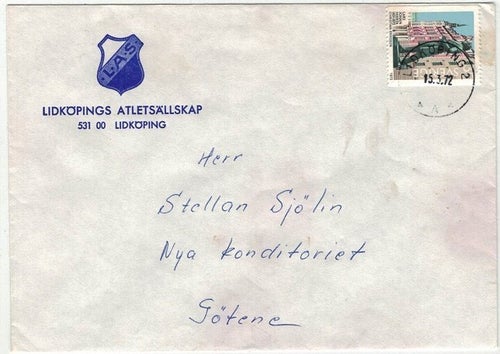 L.A.S.
LIDKÖPINGS ATLETSÄLLSKAP
531 00 LIDKÖPING
LIDKÖPING 2
15.3.72
Herr
Stellan Sjölin
Nya konditoriet
Götene